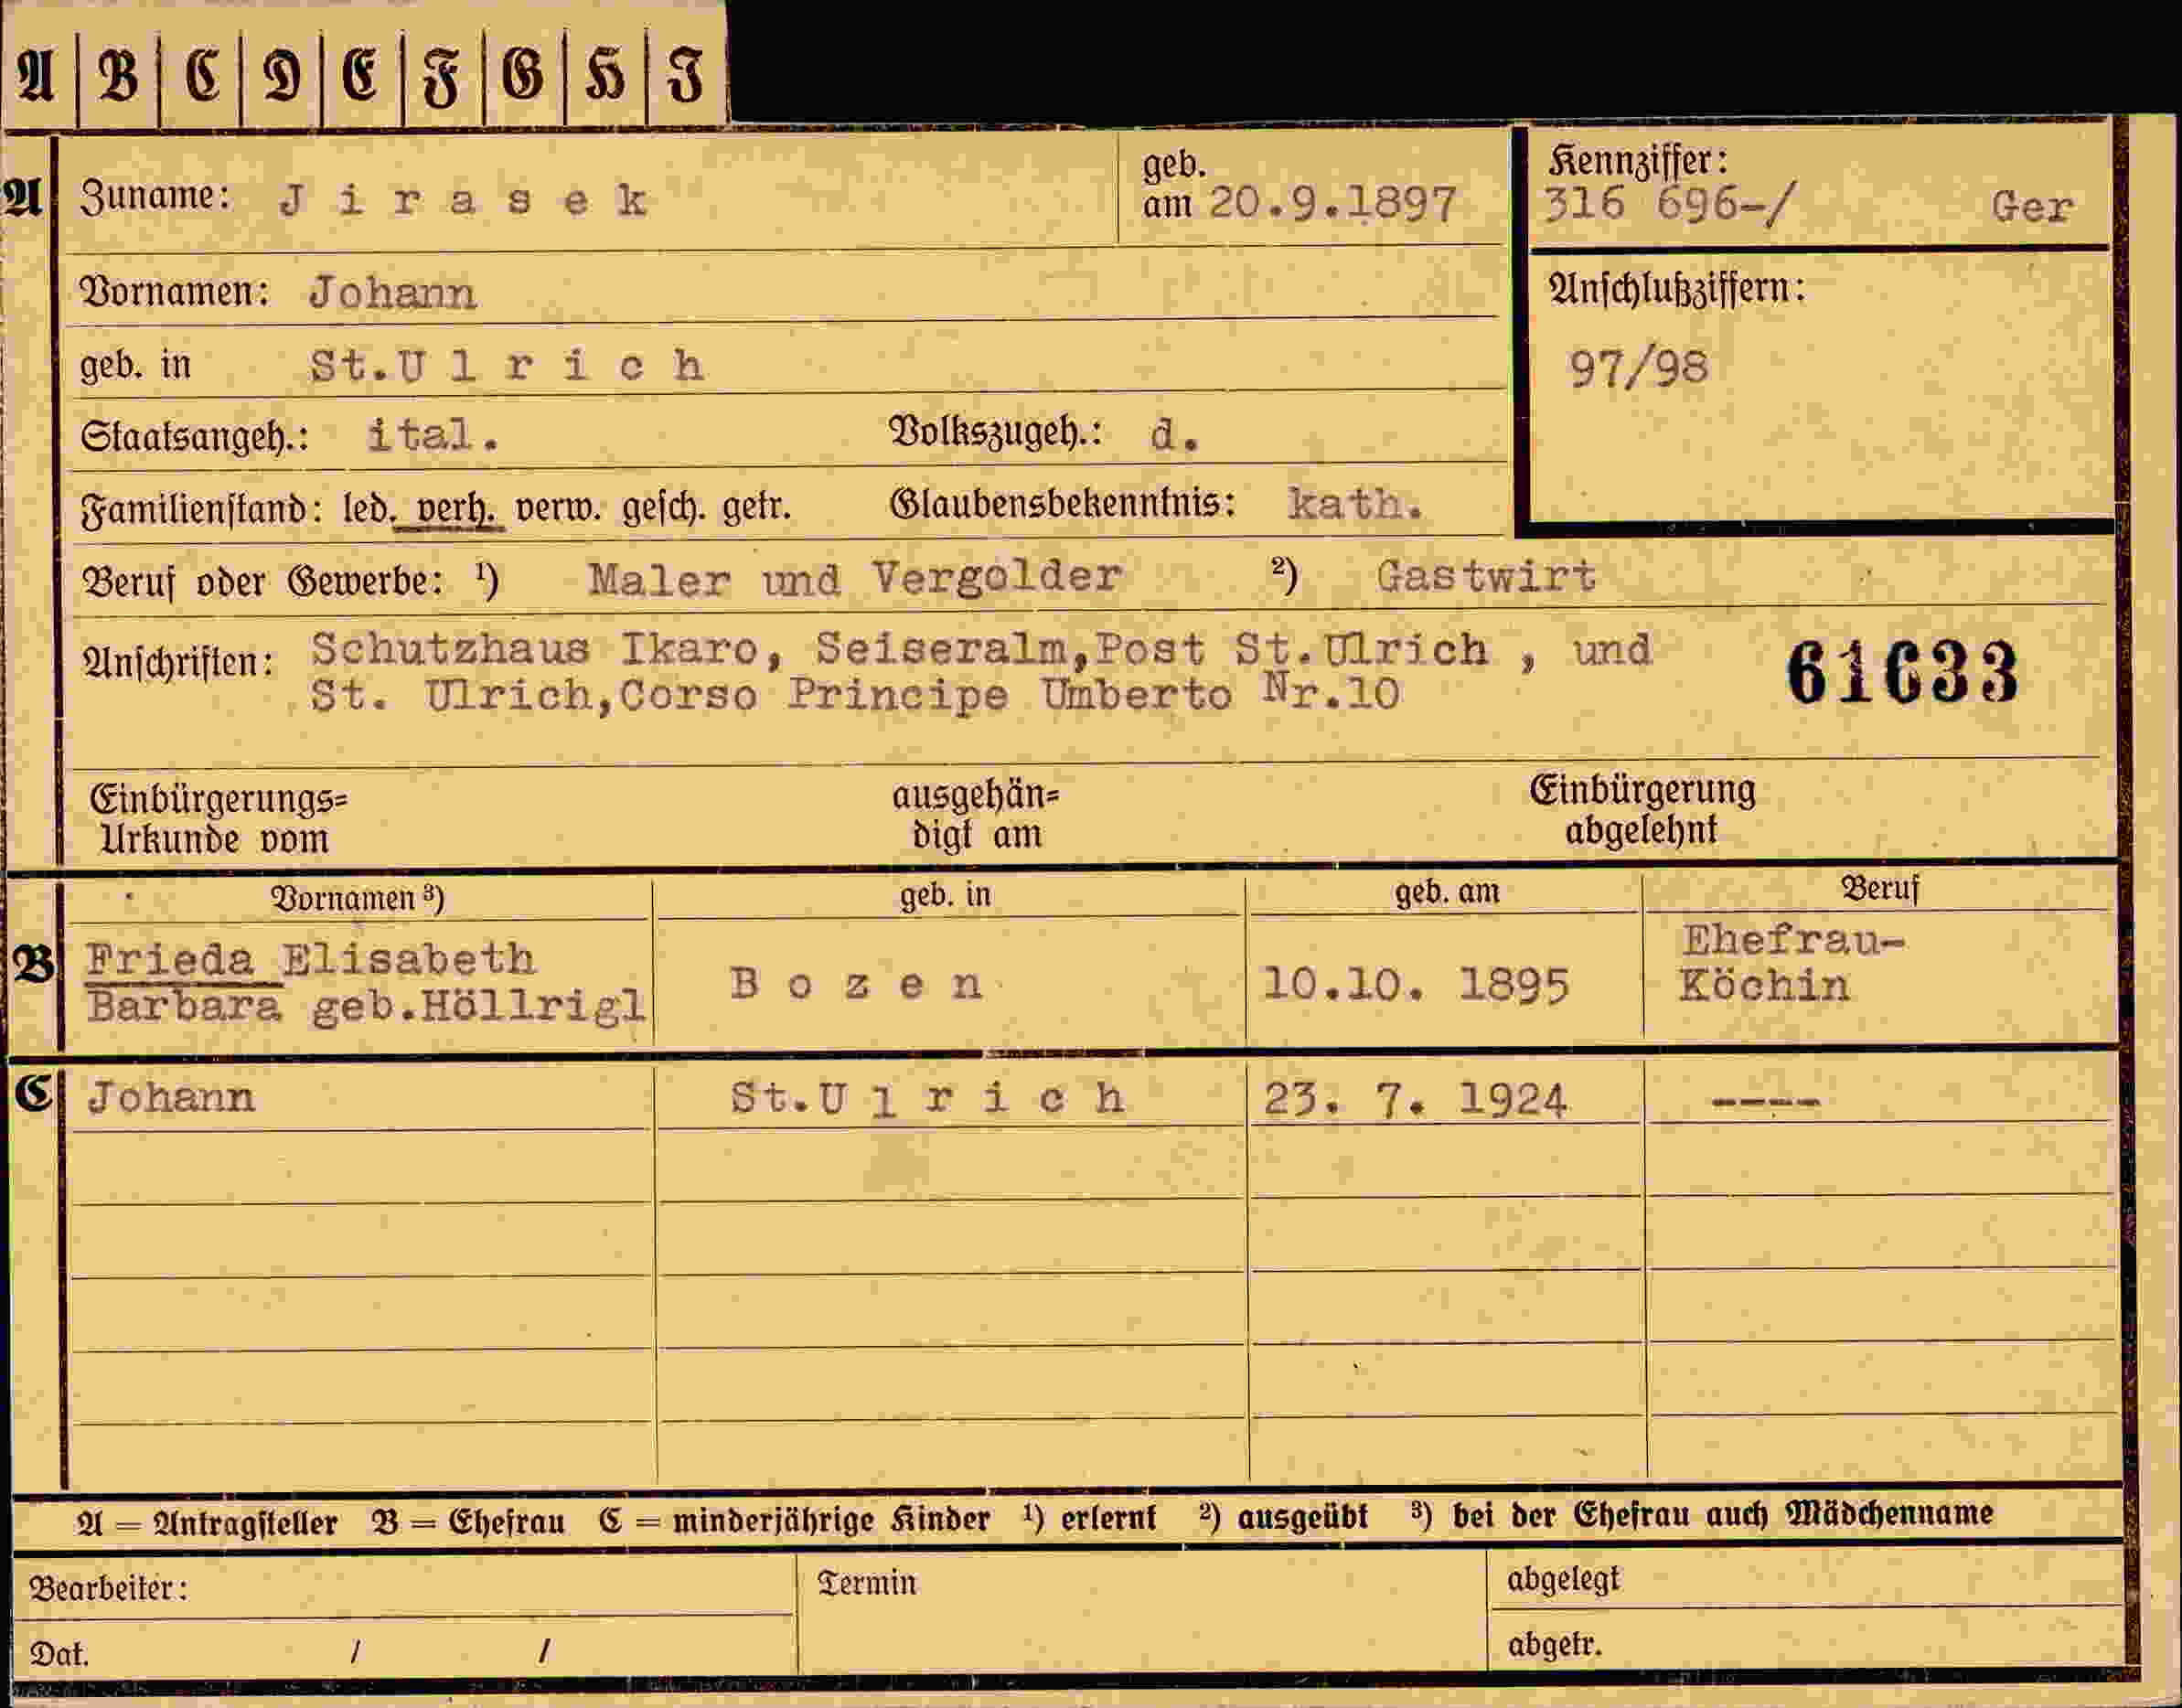 A B C D E F G H I
A Zuname: J i r a s e k geb. am 20.9.1897
Kennziffer: 316 696-/ Ger
Vornamen: Johann
Anschlußziffern:
97/98
geb. in St.U l r i c h
Staatsangeh.: ital. Volkszugeh.: d.
Familienstand: led. verh. verw. gesch. getr. Glaubensbekenntnis: kath.
Beruf oder Gewerbe: ¹) Maler und Vergolder ²) Gastwirt
Anschriften: Schutzhaus Ikaro, Seiseralm,Post St.Ulrich , und
St. Ulrich,Corso Principe Umberto Nr.10
61633
Einbürgerungs= ausgehän= Einbürgerung
Urkunde vom digt am abgelehnt
Vornamen ³) geb. in geb. am Beruf
B Frieda Elisabeth B o z e n 10.10. 1895 Ehefrau-
Barbara geb.Höllrigl Köchin
C Johann St.U l r i c h 23. 7. 1924 ----
A = Antragsteller B = Ehefrau C = minderjährige Kinder ¹) erlernt ²) ausgeübt ³) bei der Ehefrau auch Mädchenname
Bearbeiter: Termin abgelegt
Dat. / / abgetr.